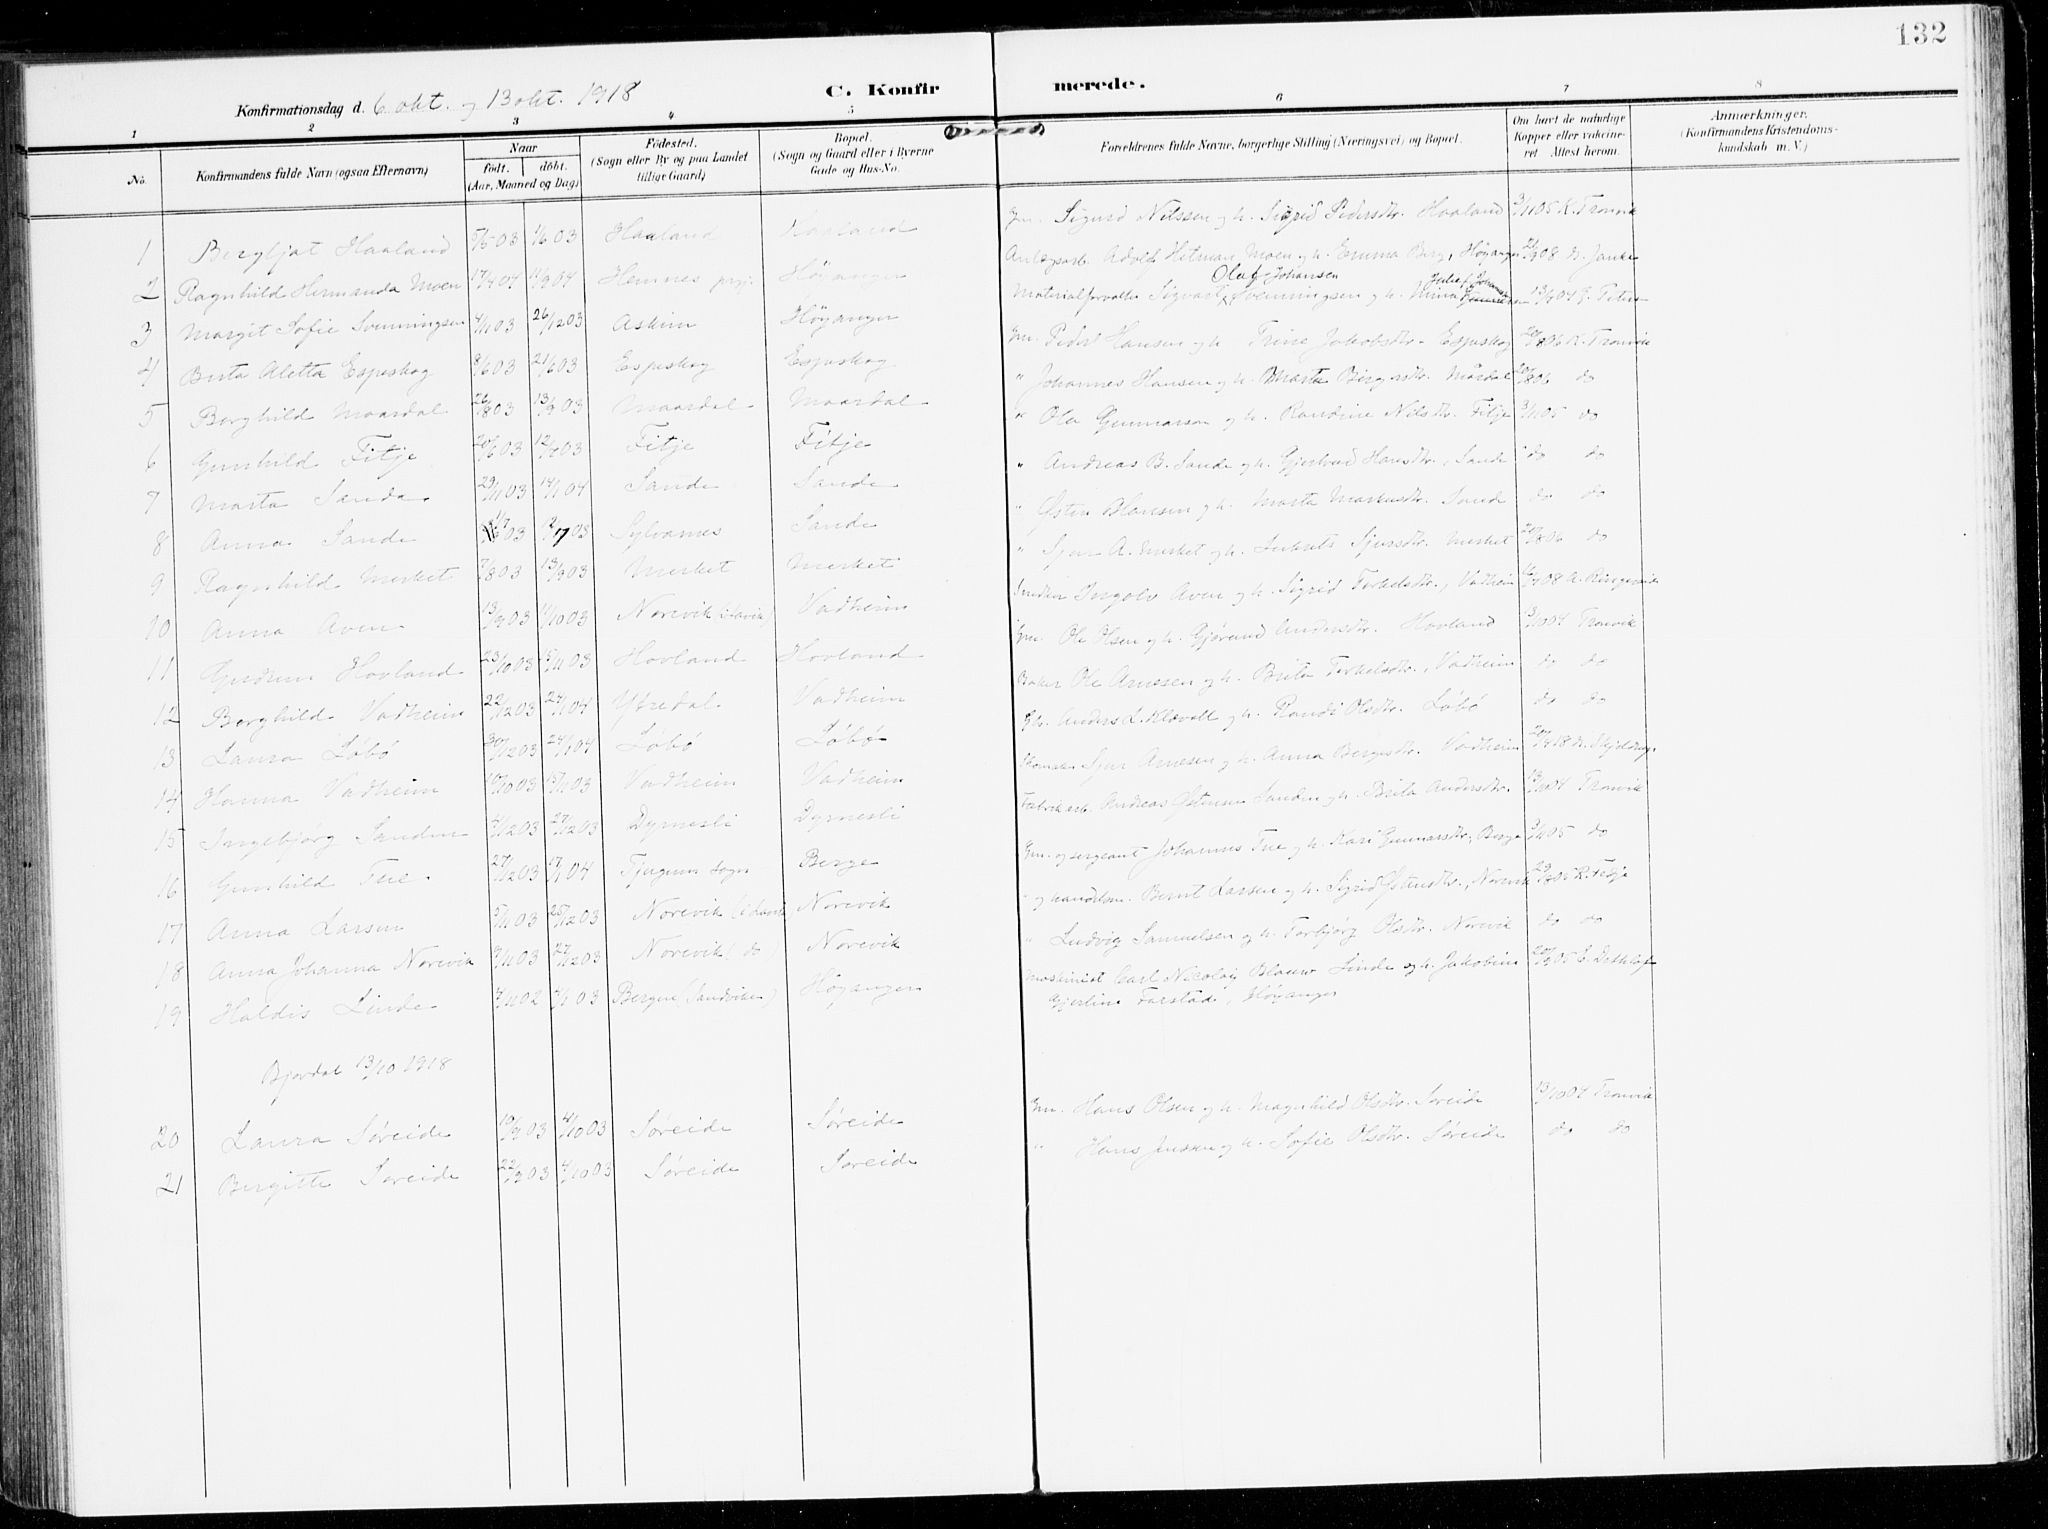 132
C. Konfirmerede.
Konfirmationsdag d. 6 okt. og 13 okt. 1918
1 2 3 4 5 6 7 8
No.
Konfirmandens fulde Navn (ogsaa Efternavn)
Naar
født. døbt.
(Aar, Maaned og Dag)
Fødested.
(Sogn eller By og paa Landet
tillige Gaard)
Bopæl.
(Sogn og Gaard eller i Byerne
Gade og Hus-No.
Forældrenes fulde Navne, borgerlige Stilling (Næringsvei) og Bopæl.
Om havt de naturlige
Kopper eller vakcine-
ret Attest herom.
Anmærkninger.
(Konfirmandens Kristendoms-
kundskab m. V.)
1 Bergljot Haaland 5/5 03 1/6 03 Haaland Haaland Gm. Sigurd Nilssen og h. Sigrid Pedersdtr. Haaland 3/11 05 K. Tronvik
2 Ragnhild Hermanda Moen 17/4 04 11/9 04 Hemnes prgj. Høyanger Anlægsarb. Adolf Hitman Moen og h. Emma Berg, Høyanger 08
Olaf Johansen
3 Margit Sofie Svenningsen 4/11 03 26/12 03 Askim Høyanger Materialforvalter Sigvart Svenningsen og h. Mina
4 Brita Aletta Espeskog 8/6 03 21/6 03 Espeskog Espeskog Gm. Peder Hansen og h. Trine Jakobsdtr. Espeskog 20/8 06 K. Tronvik
5 Borghild Maardal 26/8 03 13/9 03 Maardal Maardal " Johannes Hansen og h. Marta Birgersdtr. Mardal 20/8 06 do
6 Gunhild Fitje 20/6 03 12/7 03 Fitje Fitje " Ola Gunnarson og h. Randine Nilsdtr. Fitje 3/11 05 do
7 Marta Sande 29/11 03 14/1 04 Sande Sande " Andreas B. Sande og h. Gjertrud Hansdtr., Sande do do
8 Anna Sande 1/7 03 03 Sylvarnes Sande " Østen Hansen og h. Marta Markusdtr. Sande do do
9 Ragnhild Merket 7/8 03 13/9 03 Merket Merket " Sjur A. Merket og h. Sjursdtr. Merket 20/8 06 do
10 Anna Aven 13/9 03 11/10 03 Norevik (i Lavik) Vadheim Ingolv Aven og h. Sigrid Torkelsdtr., Vadheim 08
11 Gudrun Hovland 23/10 03 15/11 03 Hovland Hovland Gm. Ole Olsen og h. Gjørund Andersdtr. Hovland 13/10 04 Tronvik
12 Borghild Vadheim 22/12 03 24/1 04 Ytredal Vadheim Baker Ole Arnesen og h. Brita Torkelsdtr., Vadheim do do
13 Laura Løbø 30/12 03 24/1 04 Løbø Løbø Anders L. Klævold og h. Randi Olsdtr. Løbø do do
14 Hanna Vadheim 10/10 03 15/11 03 Vadheim Vadheim Skomaker Sjur Arnesen og h. Anna Bergesdtr. Vadheim 18
15 Ingebjørg Sanden 4/12 03 27/12 03 Dyrnesli Dyrnesli Fabrikarb. Andreas Østensen Sanden og h. Brita Andersdtr. 13/10 04 Tronvik
16 Gunhild Tue. 27/12 03 17/1 04 Tjugum sogn Berge Gm. og sergeant Johannes Tue og h. Kari Gunnarsdtr., Berge 3/11 05 do
17 Anna Larsen 5/11 03 25/12 03 Norevik (i Lavik) Norevik " og handelsm. Bernt Larsen og h. Sigrid Østensdtr., Norevik 05 K. Fedje
18 Anna Johanna Norevik 9/11 03 27/12 03 Norevik (do) Norevik " Ludvig Samuelsen og h. Torbjørg Olsdtr. Norevik do do
19 Haldis Linde 4/11 02 4/1 03 Bergen (Sandviken) Høyanger Maskinist Carl Nicolay Blauw Linde og h. Jakobine 05
Gjertine Farstad, Høyanger
Bjordal 13/10 1918
20 Laura Søreide 19/9 03 4/10 03 Søreide Søreide Gm. Hans Olsen og h. Magnhild Olsdtr. Søreide 13/10 04 Tronvik
21 Bergitte Søreide 22/9 03 4/10 03 Søreide Søreide " Hans Jensen og h. Sofie Olsdtr. Søreide do do